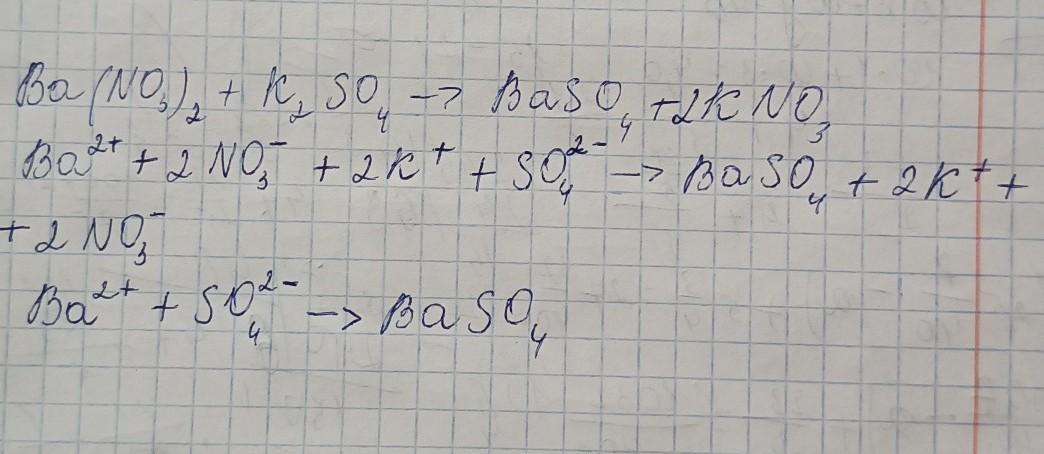 Ba(NO₃)₂ + K₂SO₄ → BaSO₄ + 2KNO₃
Ba²⁺ + 2NO₃⁻ + 2K⁺ + SO₄²⁻ → BaSO₄ + 2K⁺ +
+ 2NO₃⁻
Ba²⁺ + SO₄²⁻ → BaSO₄